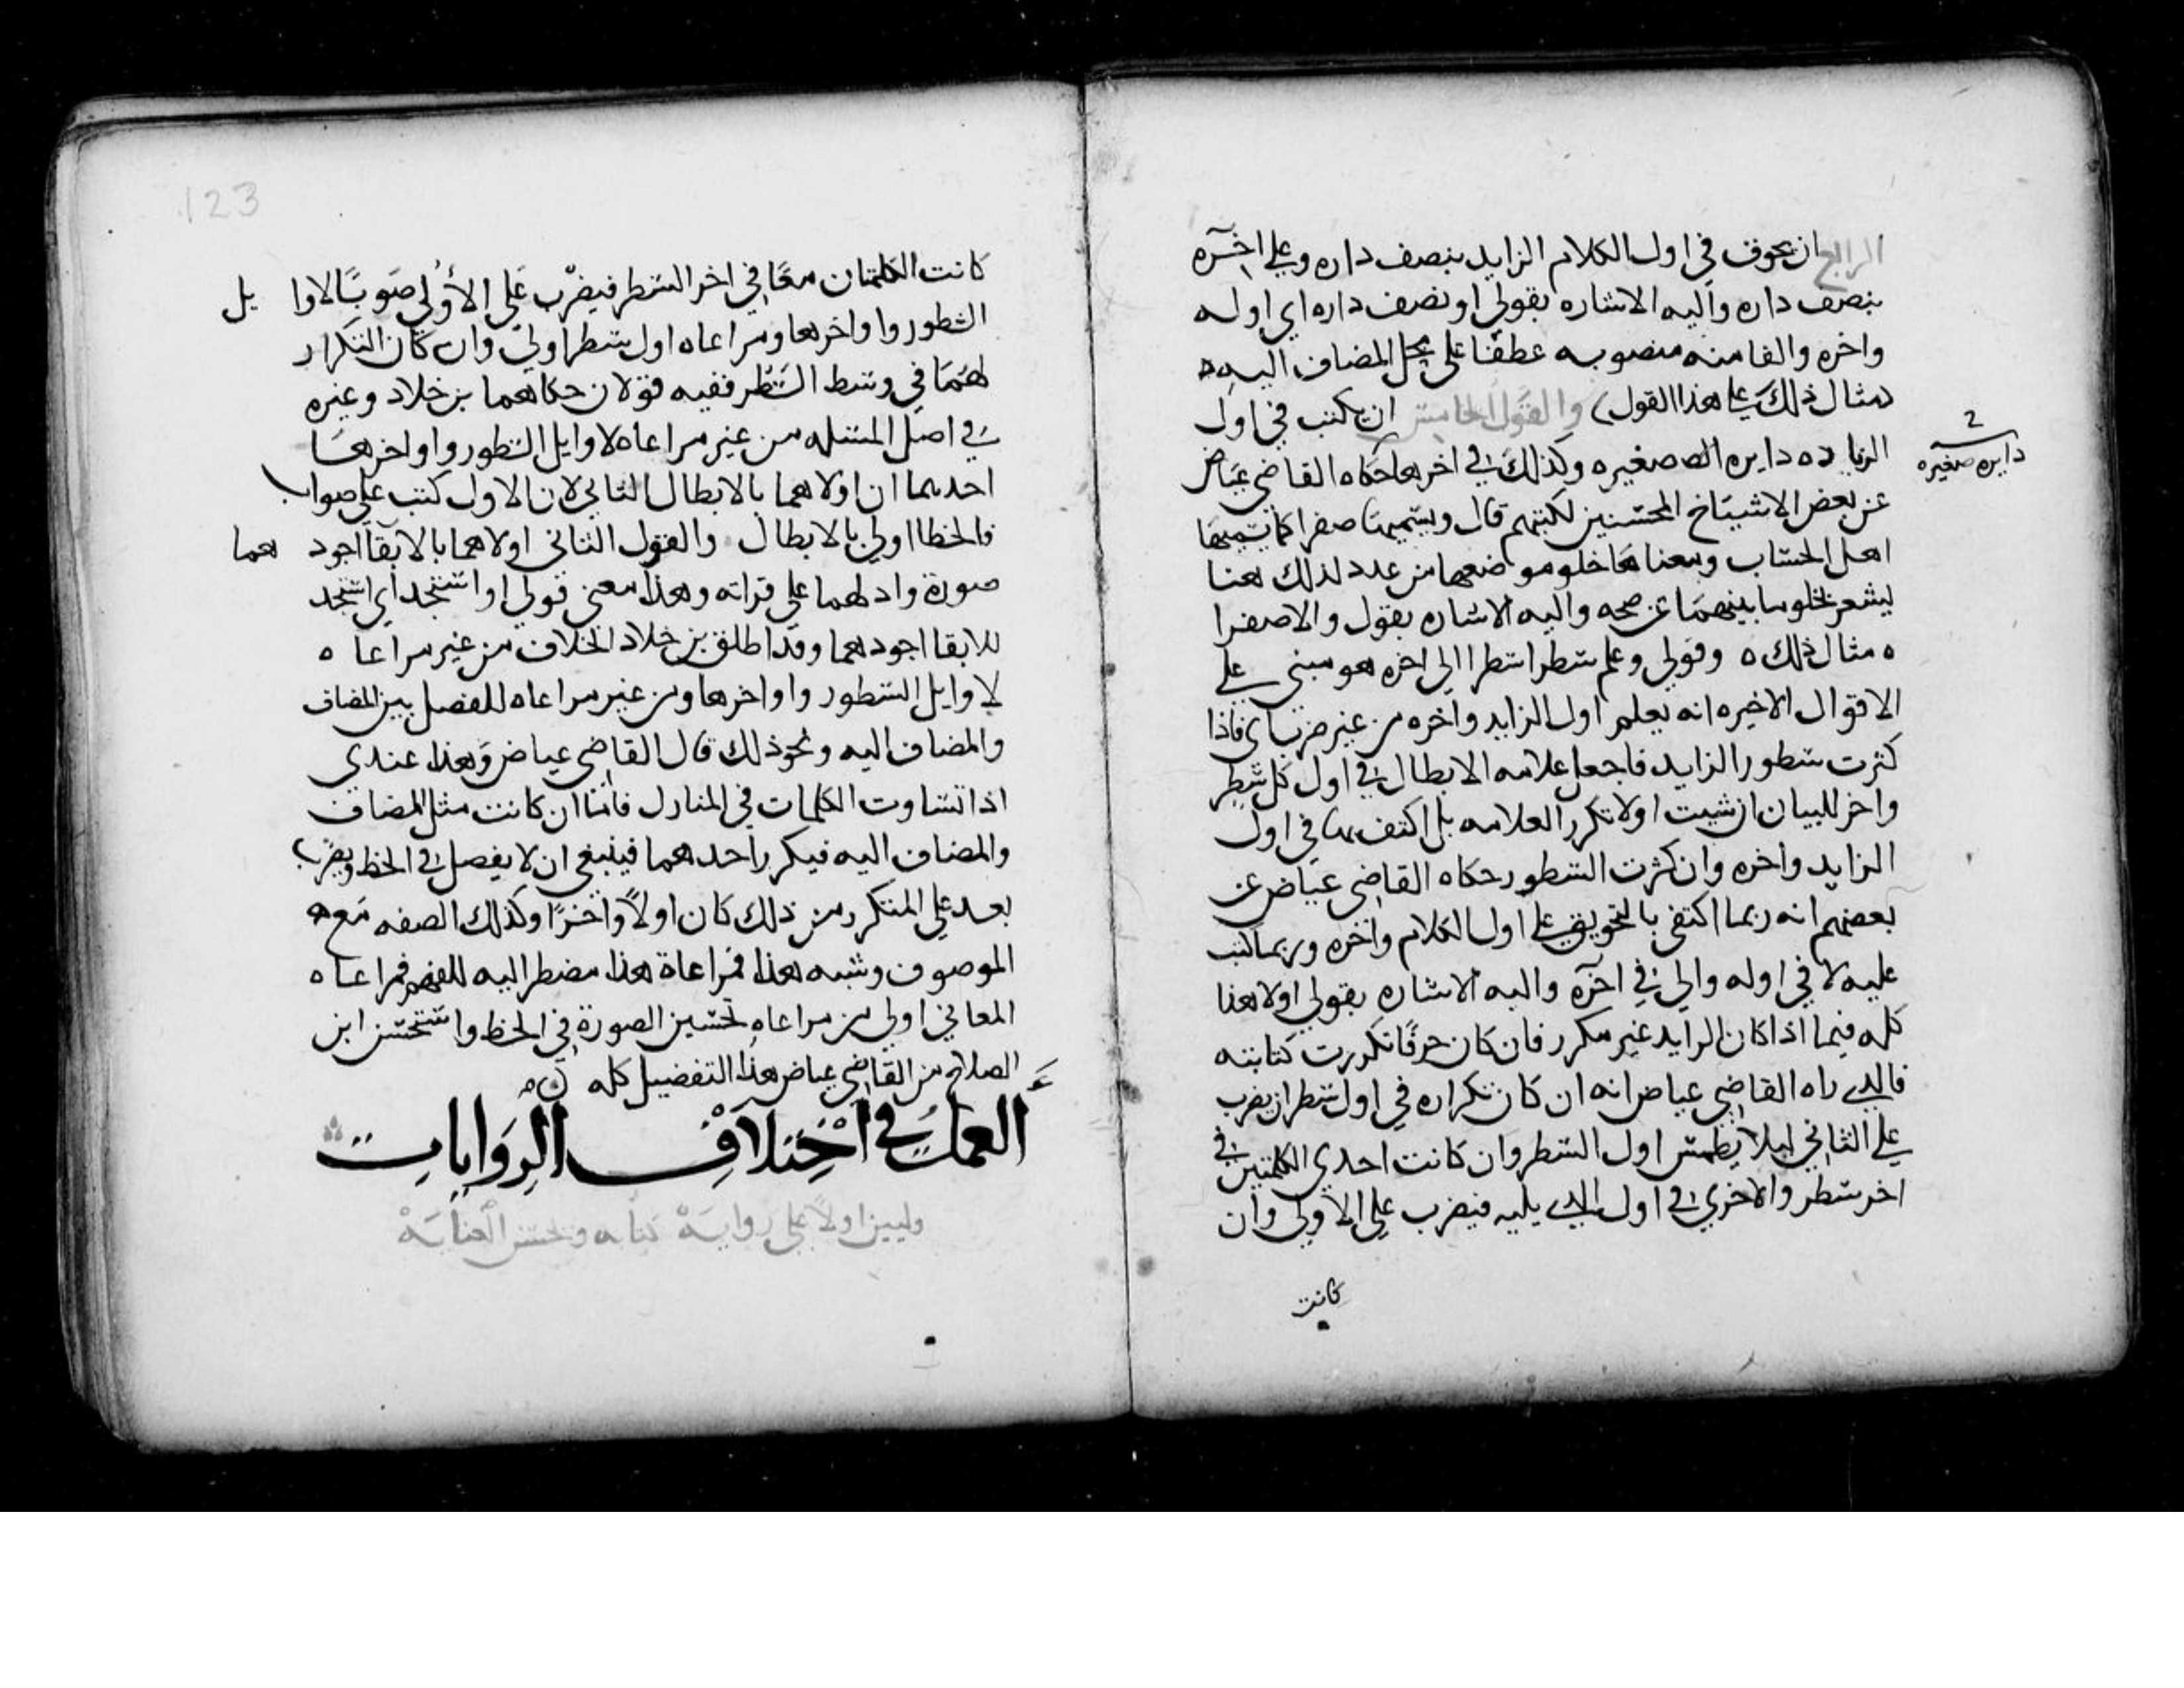 الرابع ان يحوق في اول الكلام الزايد بنصف داره وعلي اخره
بنصف داره واليه الاشاره بقولي او نصف داره اي اوله
واخره والفا منه منصوبه عطفا علي محل المضاف اليه ه
(مثال ذلك علي هذا القول) والقول الخامس ان يكتب في اول
الزياده دايره صغيره وكذلك في اخرها حكاه القاضي عياض
2
دايره صغيره
عن بعض الاشياخ المحسنين لكتبهم قال ويسميها صفرا كما يسميها
اهل الحساب ومعناها خلو موضعها من عدد لذلك هنا
ليشعر بخلو ما بينهما عن صحه واليه الاشاره بقول والا صفرا
ه مثال ذلك ه وقولي وعلم سطرا سطرا الي اخره هو مبني علي
الاقوال الاخيره انه يعلم اول الزايد واخره من غير ضرب اي فاذا
كثرت سطور الزايد فاجعل علامه الابطال في اول كل سطر
واخر للبيان ان شيت او لا تكرر العلامه بل اكتف بها في اول
الزايد واخره وان كثرت السطور حكاه القاضي عياض عن
بعضهم انه ربما اكتفي بالتحويق علي اول الكلام واخره وربما كتب
عليه لا في اوله والي في اخره واليه الاشاره بقولي اولا هذا
كله فيما اذا كان الزايد غير مكرر فان كان حرفا تكررت كتابته
فالدي راه القاضي عياض انه ان كان تكراره في اول سطر ان يضرب
علي الثاني ليلا يطمس اول السطر وان كانت احدي الكلمتين في
اخر سطر والاخري في اول الدي يليه فيضرب علي الاولي وان
كانت
123
كانت الكلمتان معا في اخر السطر فيضرب علي الاولي صوبا لاوا يل
السطور واواخرها ومراعاه اول سطر اولي وان كان التكرار
لهما في وسط السطر ففيه قولان حكاهما بن خلاد وغيره
في اصل المسئله من غير مراعاه لاوايل السطور واواخرها
احدهما ان اولاهما بالابطال الثاني لان الاول كتب علي صواب
فالخطا اولي بالابطال والقول الثاني اولاهما بالابقا اجود هما
صورة وادلهما علي قراته وهذا معني قولي او استجد اي استجد
للابقا اجودهما وقد اطلق بن خلاد الخلاف من غير مراعا ه
لاوايل السطور واواخرها ومن غير مراعاه للفصل بين المضاف
والمضاف اليه ونحو ذلك قال القاضي عياض وهذا عندي
اذا تساوت الكلمات في المنازل فاما ان كانت مثل المضاف
والمضاف اليه فيكرر احدهما فينبغي ان لا يفصل في الخط ويضرب
بعد علي المتكرر من ذلك كان اولا واخرا وكذلك الصفه مع ه
الموصوف وشبه هذا فمراعاة هذا مضطر اليه للفهم فمراعا ه
المعاني اولي من مراعاه تحسين الصورة في الخط واستحسن ابن
الصلاح من القاضي عياض هذا التفصيل كله
العمل في اختلاف الروايات
وليبن اولا علي رواية كتابه ويحسن العناية